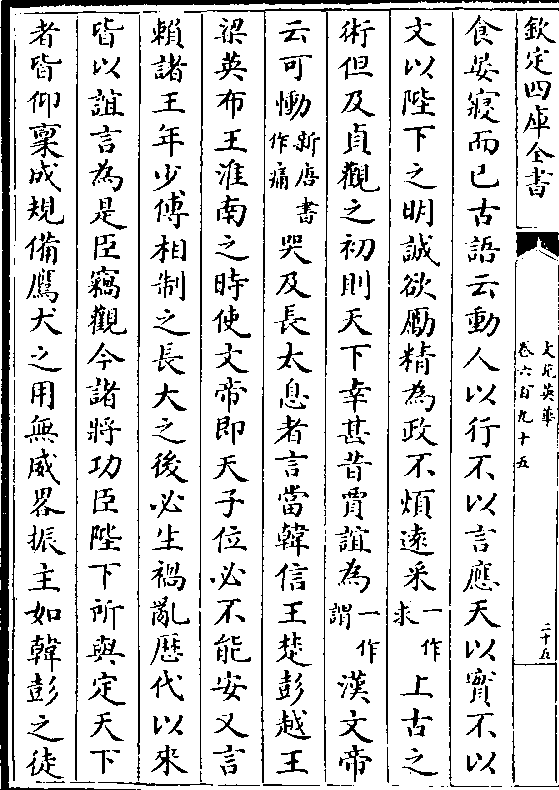 欽定四庫全書
文苑英華
卷六百九十五
二十五
食晏寢而已古語云動人以行不以言應天以實不以
文以陛下之明誠欲勵精為政不煩逺采一作求上古之
術但及貞觀之初則天下幸甚昔賈誼為一作謂漢文帝
云可慟新唐書作痛哭及長太息者言當韓信王楚彭越王
梁英布王淮南之時使文帝即天子位必不能安又言
賴諸王年少傅相制之長大之後必生禍亂歴代以來
皆以誼言為是臣竊觀今諸將功臣陛下所與定天下
者皆仰稟成規備鷹犬之用無威畧振主如韓彭之徒